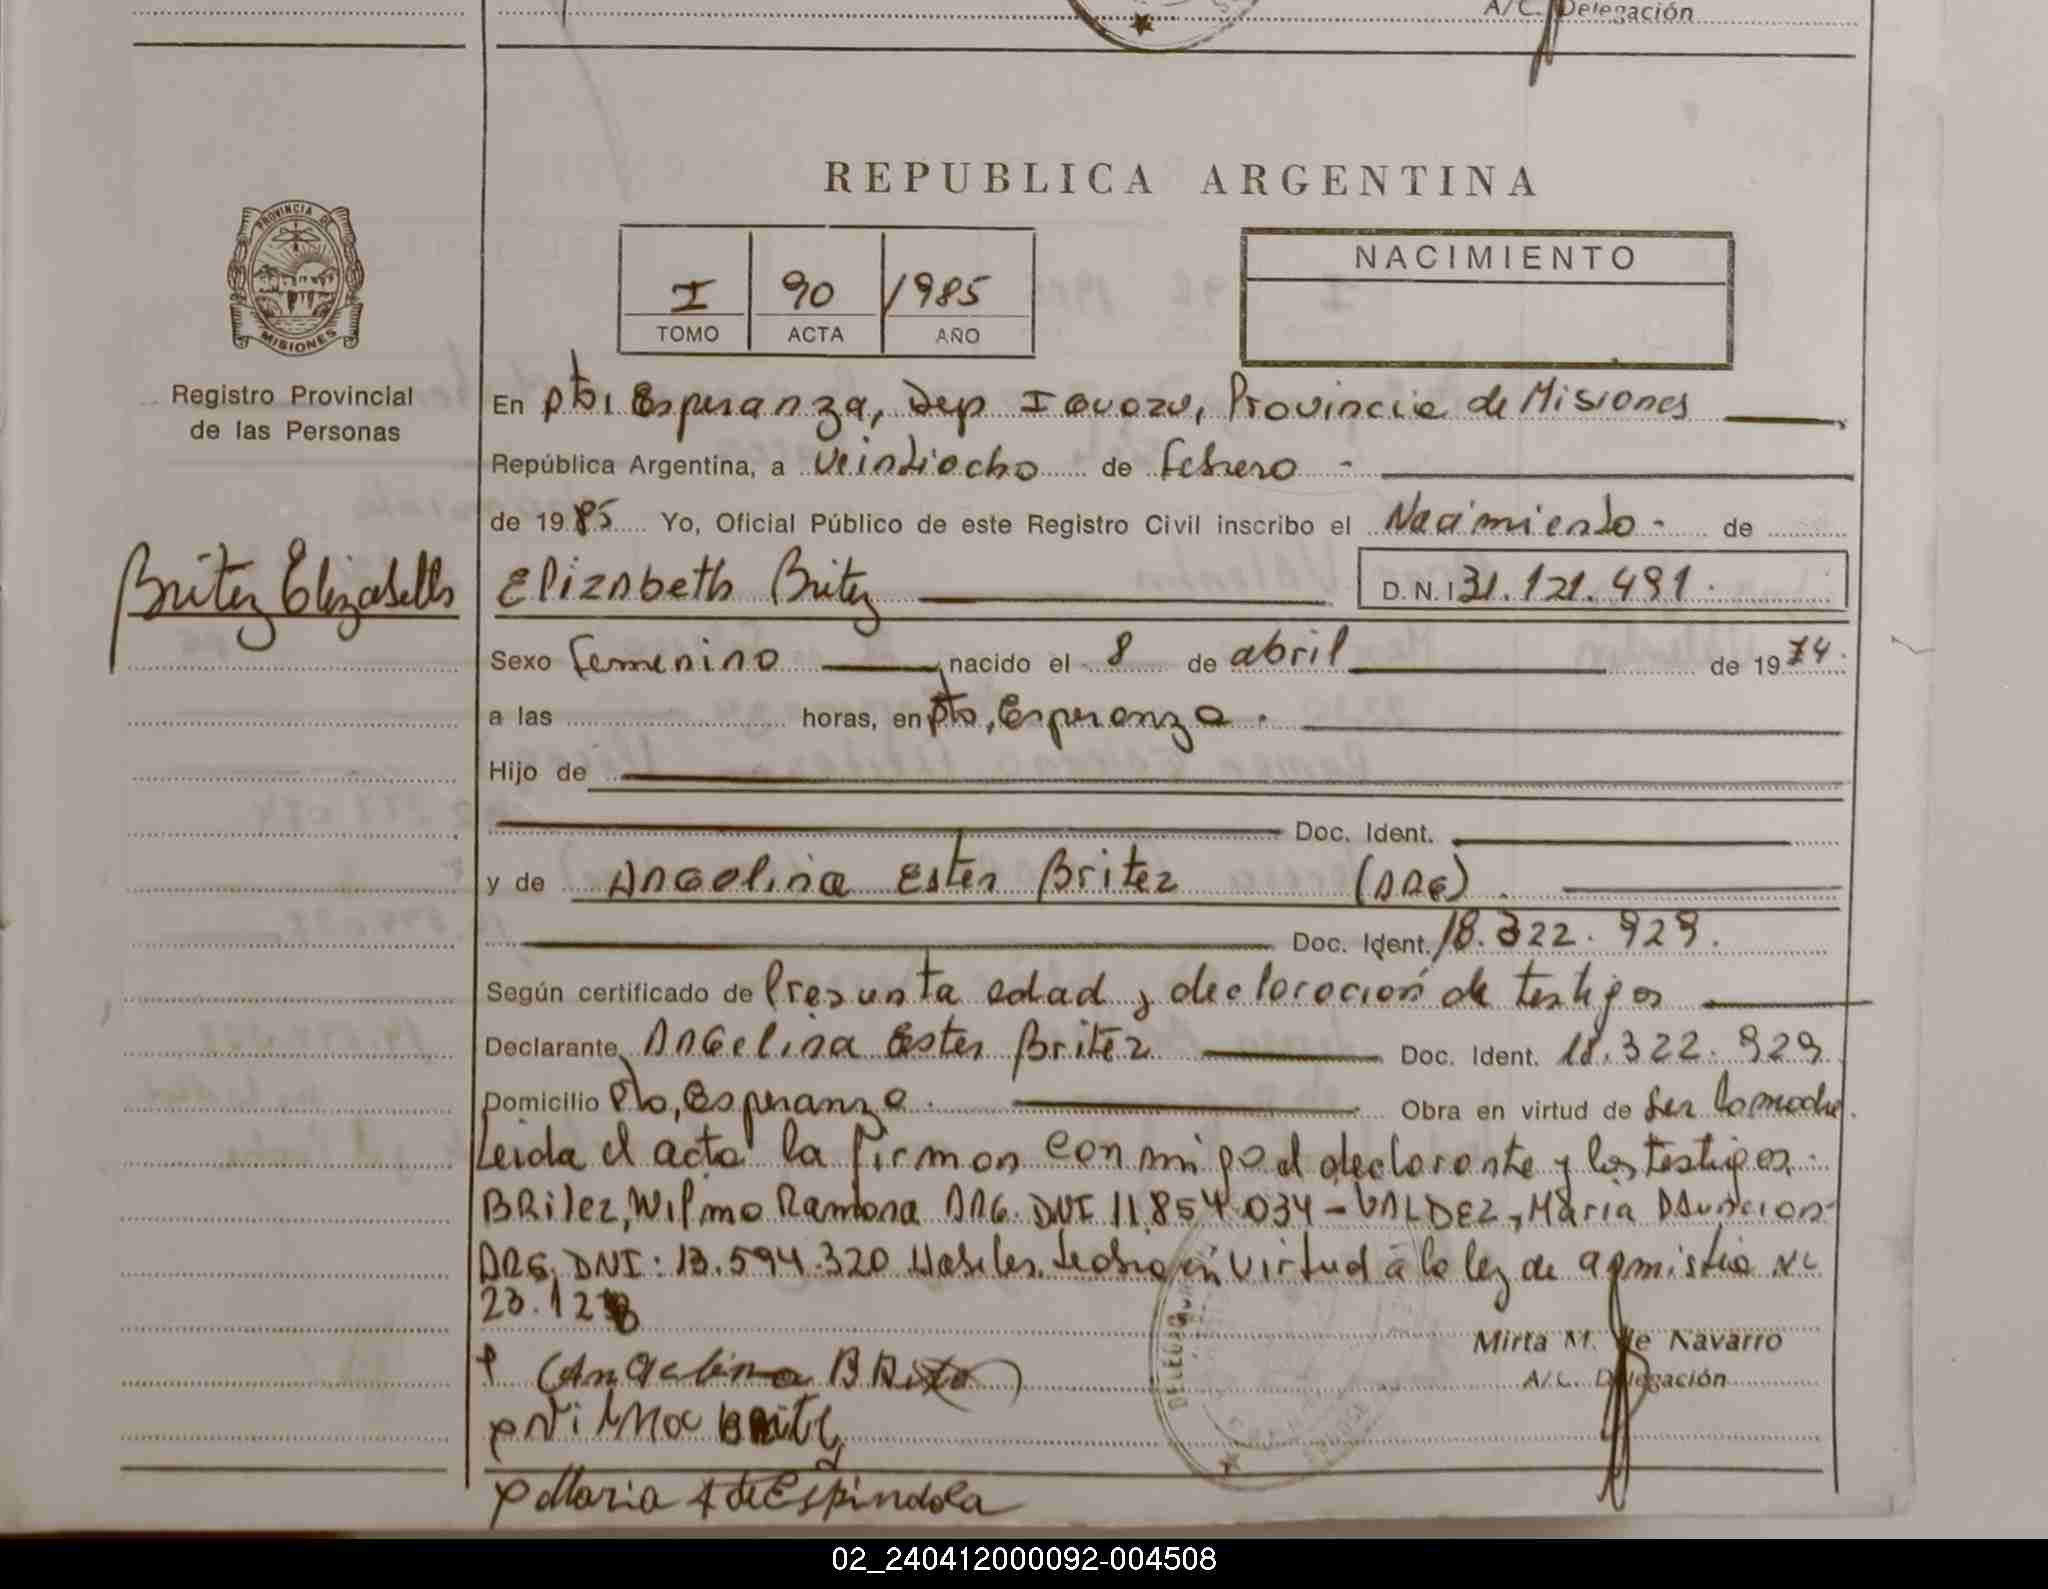 A/C. Delegación
REPUBLICA ARGENTINA
PROVINCIA DE
MISIONES
NACIMIENTO
I 90 1985
TOMO ACTA AÑO
Registro Provincial
de las Personas
En Pto, Esperanza, Dep Iguazu, Provincia de Misiones
República Argentina, a veintiocho de febrero -
de 1985 Yo, Oficial Público de este Registro Civil inscribo el Nacimiento - de
Britez Elizabeth
Elizabeth Britez D.N.I 31.121.491.
Sexo femenino nacido el 8 de abril de 1974.
a las horas, en Pto, Esperanza.
Hijo de
Doc. Ident.
y de Angelina Ester Britez (ARG).
Doc. Ident. 18.322.929.
Según certificado de Presunta edad y declaración de testigos
Declarante Angelina Ester Britez Doc. Ident. 18.322.929
Domicilio Pto, Esperanza. Obra en virtud de ser la madre.
Leida el acta la firman conmigo el declarante y los testigos.
BRitez, Wilma Ramona ARG. DNI 11.854.034 - VALDEZ, Maria Asuncion
ARG, DNI: 13.594.320 en virtud a la ley de
23.128
Mirta M. de Navarro
A/C. Delegación
Angelina BRitez
Vilma Britez
Maria A de Espindola
02_240412000092-004508